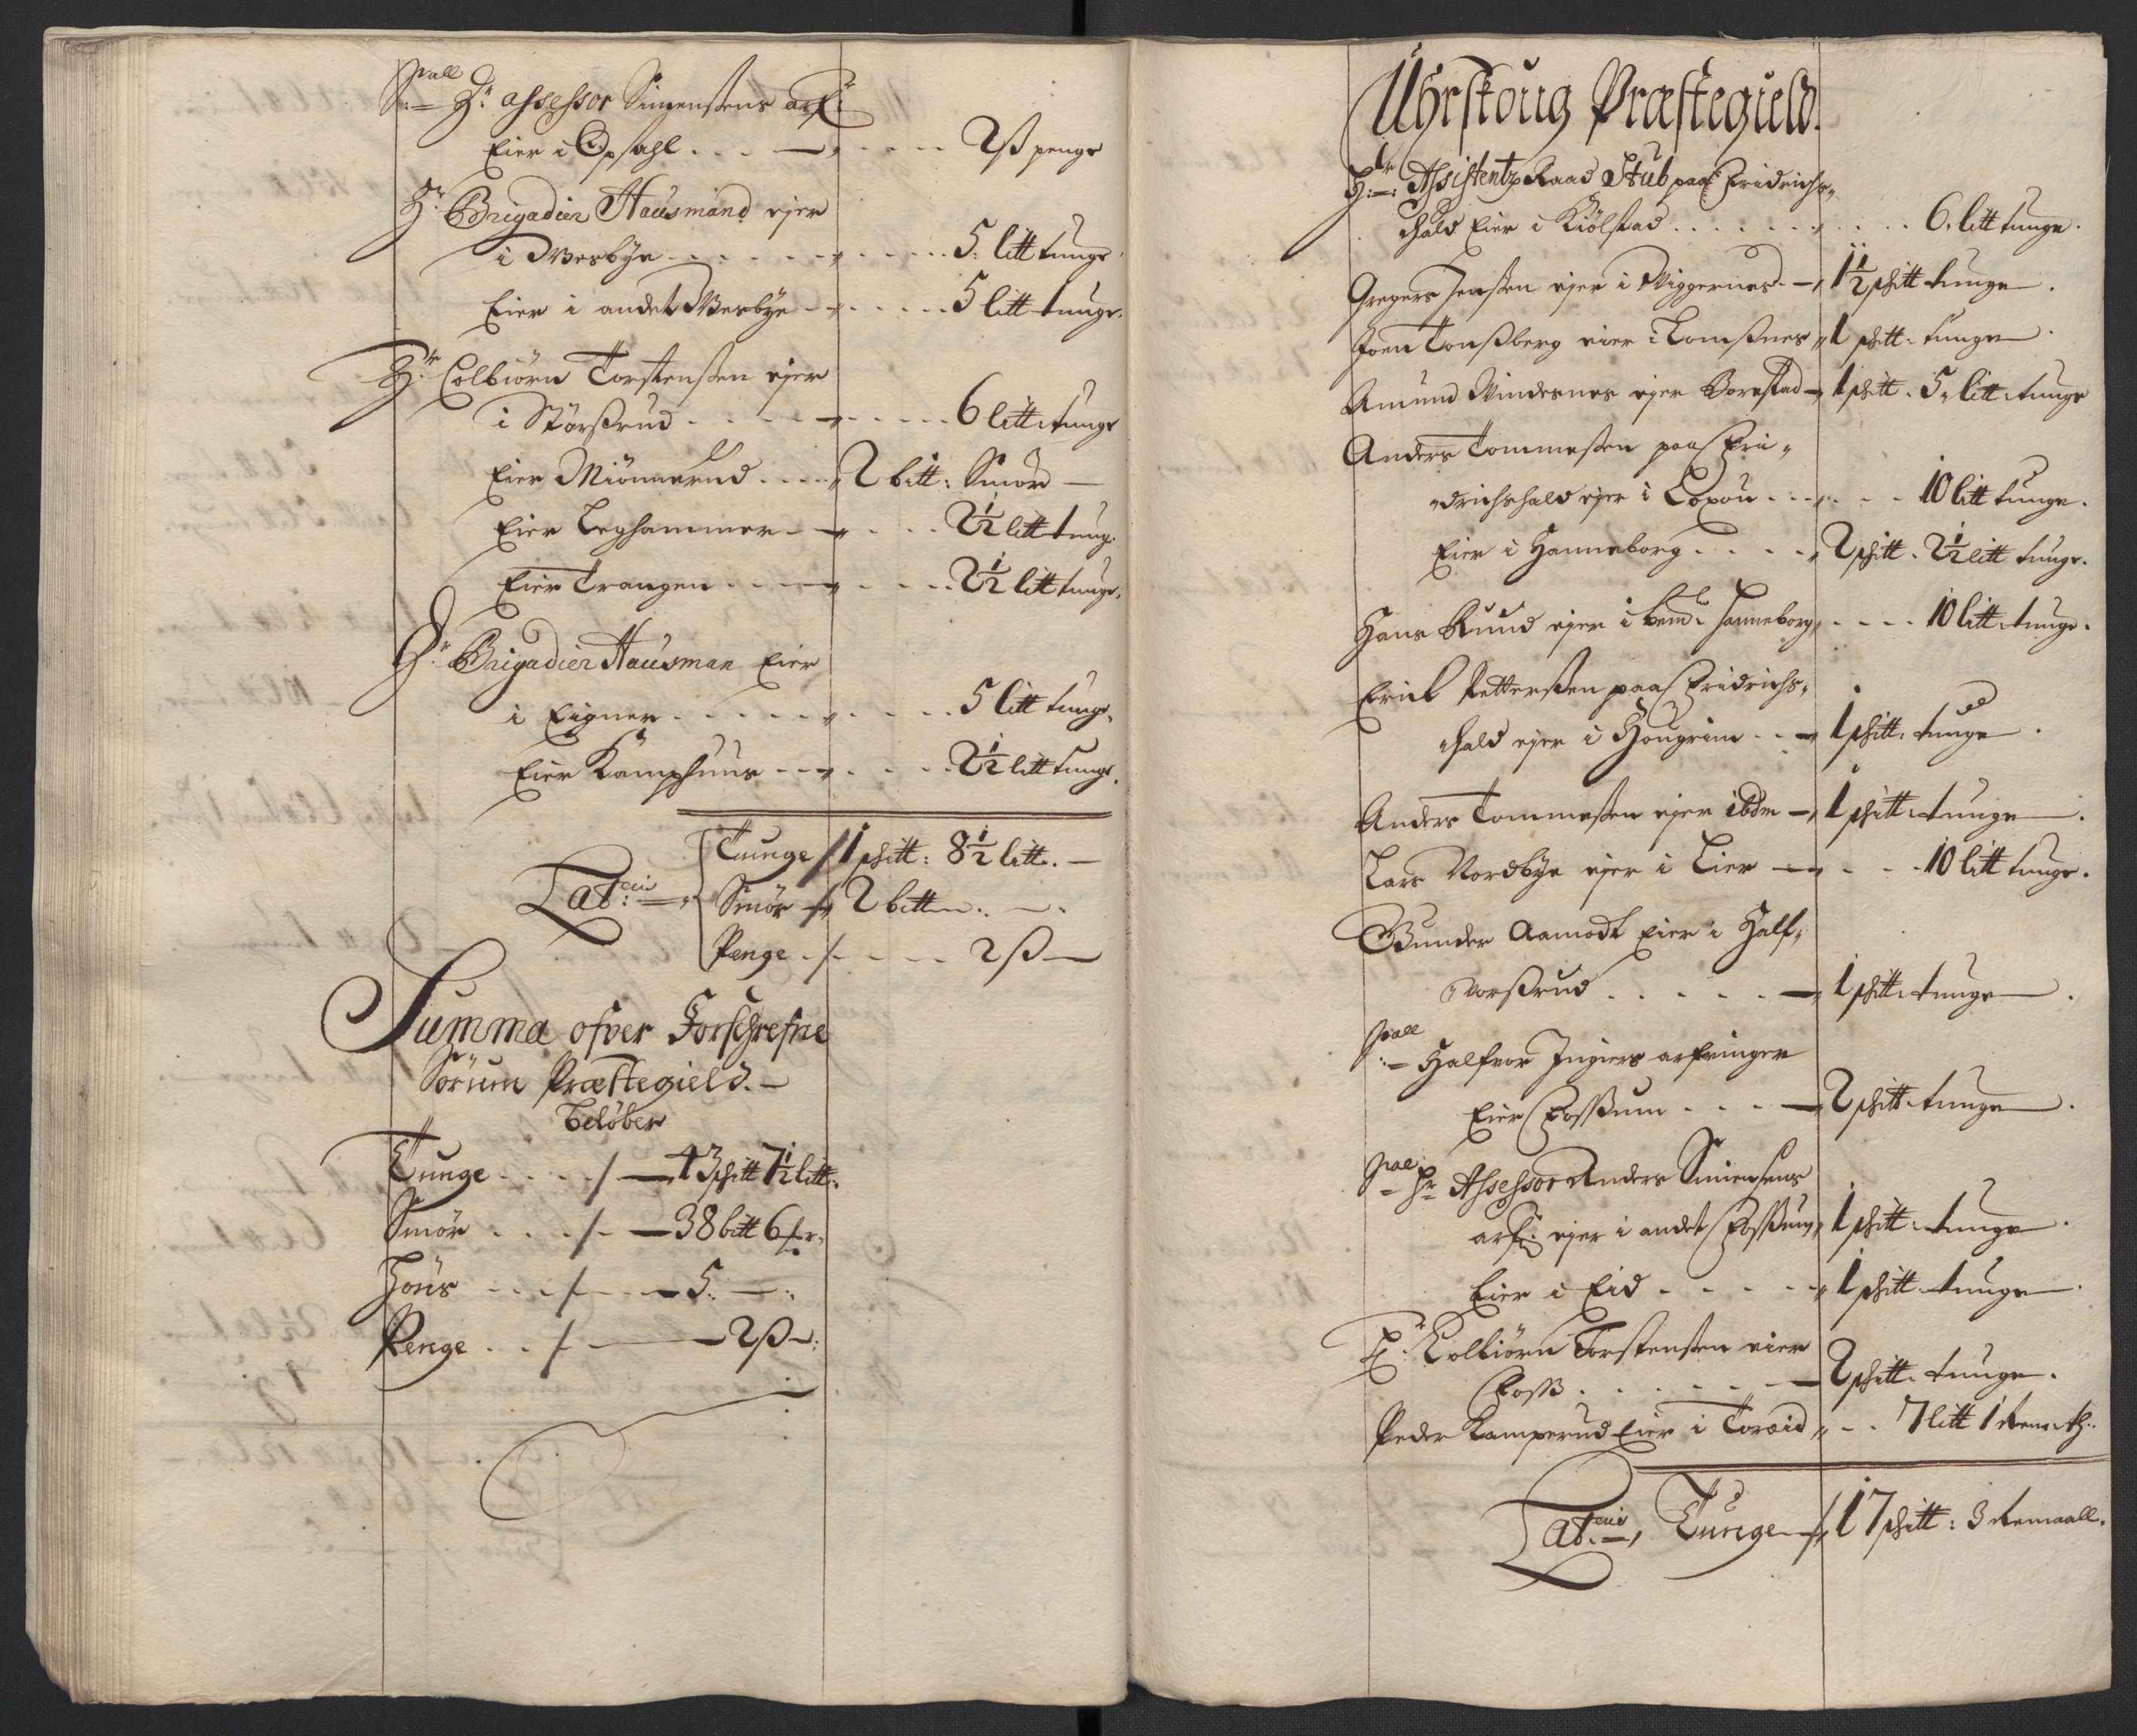 Sall
S:– Hr: assessor Simensens arf:
Eier i Opsahl . . . — „ . . . . 2 ß penge
Hr: Brigadier Hausmand ejer
i Wesbye . . . . . . „ . . . . 5: litt tunge
Eier i andet Wesbye – „ . . . . 5 litt tunge.
Hr: Colbiørn Torstensen ejer
i Størsrud . . . . – „ . . . . 6 litt: tunge
Eier Miönnerud . . . . „ 2 bitt: Smör —
Eier Leghammer – – „ . . . 2½ litt tung:
Eier Trangen . . . — „ . . . 2½ litt tunge.
Hr: Brigadier Hausman Eier
i Eigner . . . . . . „ . . . . 5 litt tunge.
Eier Kamphuus – – „ . . . . 2½ litt tunge.
Tunge / 1 schitt: 8½ litt. —
Lat:eris — „ Smör – „ 2 bitt . —
Penge . / . – – – 2 ß —
Summa ofver Forschrefne
Sörum Præstegield. –
Belöber
Tunge . . . . / — 43 schitt 7½ litt:
Smör . . . / – — 38 bitt 6 .
. . . / – – – 5. — .
Penge . . / – — — 2 ß –:
Uhrskoug Præstegield.
Hr:–: Assistentz Raad Stub paa Fridrichs„
hald Eier i Kiölstad . . . . . . . „ . . . . 6. litt tunge.
Gregers Jensen ejer i Wiggernes – „ 1½ schitt tunge .
Joen Tonsberg eier i Tomsnes „ 1 schitt. tunge .
Amund Mindesnes ejer Borestad – „ 1 schitt. 5„ litt: tunge
Anders Tommesen paa Fri„
„drichshald ejer i . . . „ . . . 10 litt tunge.
Eier i Hanneborg . . . . „ 2 schitt. 2½ litt tunge.
Hans Ruud ejer i bem:te Hanneborg „ . . . . 10 litt: tunge.
Erick Pettersen paa Fridrichs„
„hald ejer i Hougrim . . – „ 1 schitt: tunge .
Anders Tommesen ejer ibdm – „ 1 schitt: tunge .
Lars Nordbye ejer i Lier – – „ . . . 10 litt tunge.
Gunder Aamodt Eier i Half„
„vorsrud . . . . . — „ 1 schitt: tunge .
Sall
:– Halfvor Ingiers arfvinger
Eier Fossum . . . — 2 schitt: tunge .
Sal:
– Hr Assessor Anders Simensens
arf: ejer i andet Fossum „ 1 schitt: tunge .
Eier i Eid . . . . – „ 1 schitt: tunge .
Hr: Colbiörn Torstensen eier
Foss . . . . . . — 2 schitt: tunge .
Peder Kamperud Eier i Toreid „ – . 7 litt 1 Rem: tz:
Lat:eris –, Tunge – / „ 17 schitt: 3 Remaall.